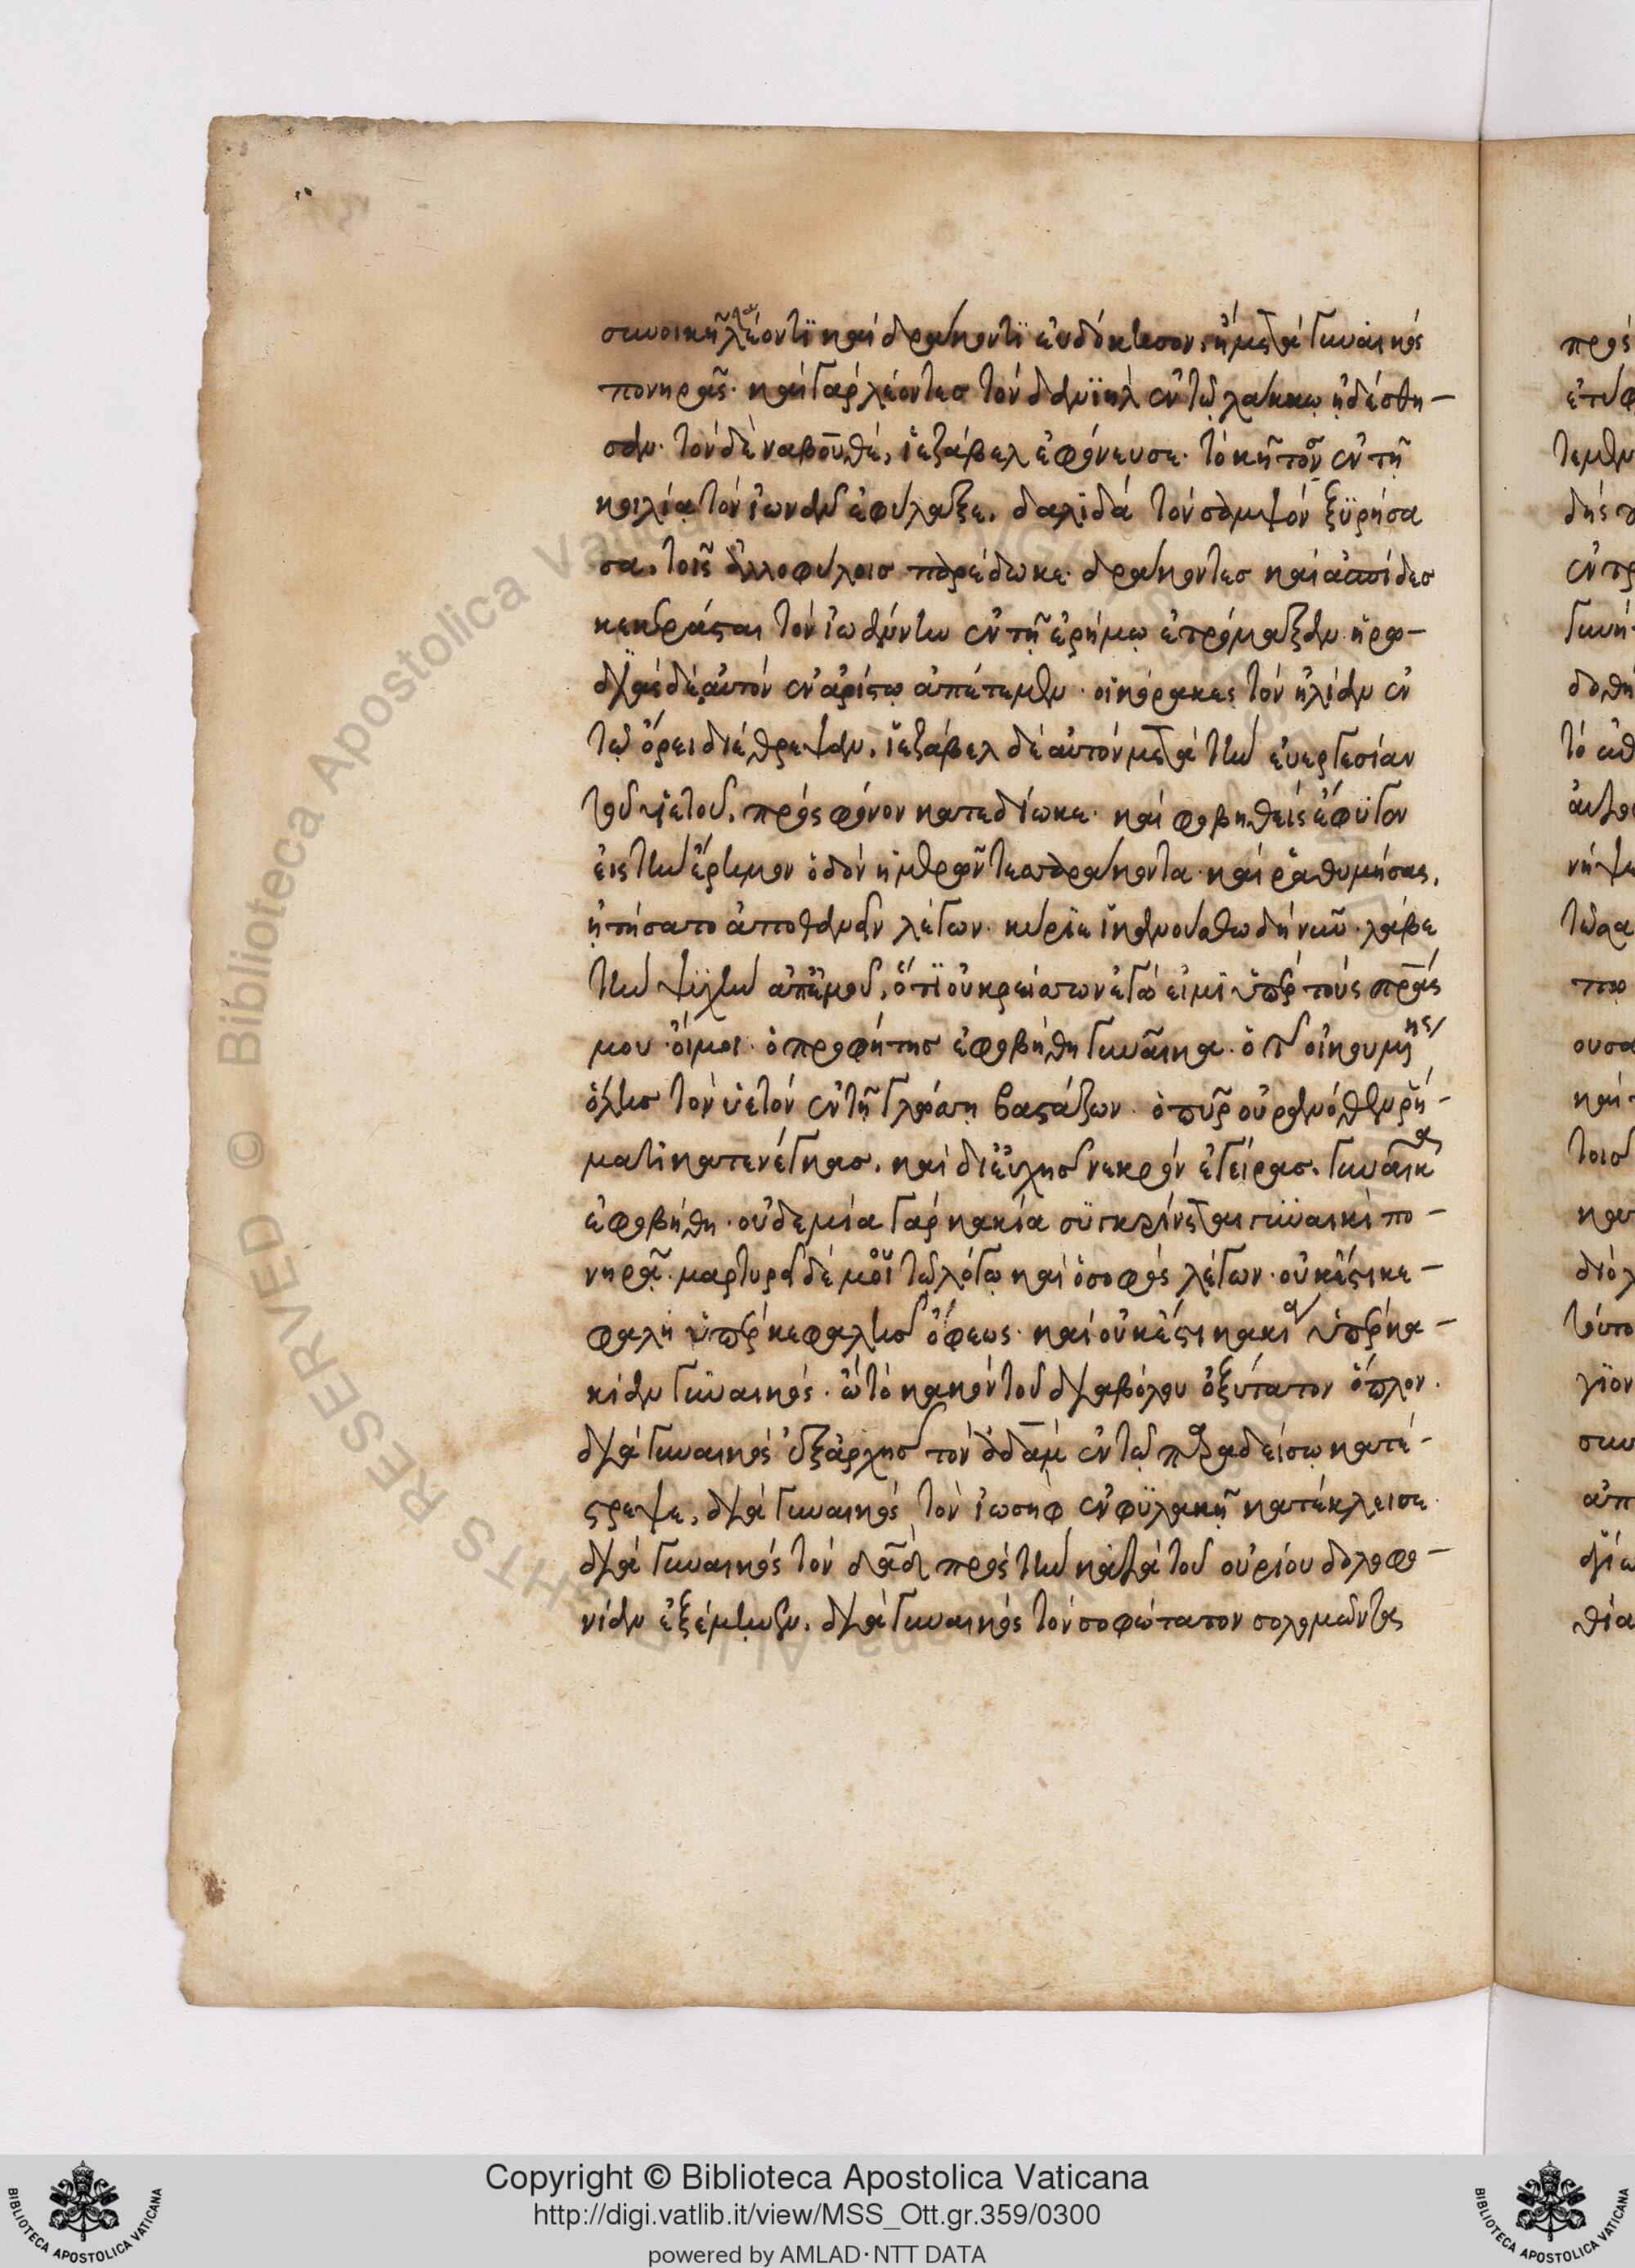 συνοικῆσαι λέοντϊ καὶ δράκοντϊ ἐυδόκησον, ἢ μετὰ γυναικός
πονηρᾶς· καὶ γὰρ λέοντες τὸν δανϊὴλ ἐν τῷ λάκκω ἠδέσθη-
σαν· τὸν δὲ ναβουθέ, ἱεζάβελ ἐφόνευσε· τὸ κῆτος ἐν τῇ
κοιλία τὸν ἰωνᾶν ἐφύλαξε, δαλιδά τὸν σαμψόν ξϋρήσα
σα, τοῖς ἀλλοφύλοισ παρέδωκε· δράκοντεσ καὶ ἀσπίδεσ
καὶ κεράσται τὸν ἰωάννην ἐν τῇ ἐρήμω ἐτρόμαξαν· ἡρω-
διὰς δὲ αὐτὸν ἐν ἀρίστω ἀπέτεμεν· οἱ κόρακες τὸν ἠλίαν ἐν
τῷ ὄρει διέθρεψαν, ἱεζάβελ δὲ αὐτὸν μετὰ τὴν ἐυεργεσίαν
τοῦ ὑετοῦ, πρὸς φόνον κατεδίωκε· καὶ φοβηθεὶς ἔφυγον
εἰς τὴν ἔρημον ὁδὸν ἡμερῶν τεσσαράκοντα· καὶ ῥαθυμήσας,
ἠτήσατο ἀποθανεῖν λέγων· κύριε ἱκανούσθω δὴ νῦν· λάβε
τὴν ψυχὴν ἀπ' ἐμοῦ, ὅτϊ οὐ κρείσσων ἐγώ εἰμϊ ὑπὲρ τοὺς πρας
μου· οἴμοι· ὁ προφήτησ ἐφοβήθη γυναῖκα· ὁ τῆς οἰκουμένης
ὅλησ τὸν ὑετὸν ἐν τῇ γλώσση βαστάζων· ὁ πῦρ οὐρανόθεν ῥή-
ματϊ κατενέγκασ, καὶ δι' εὐχῆσ νεκρὸν ἐγείρας, γυναῖκα
ἐφοβήθη· οὐδεμία γὰρ κακία συγκρίνεται γυναικὶ πο-
νηρᾷ· μαρτυρεῖ δέ μοϊ τῷ λόγω καὶ ὁ σοφὸς λέγων· οὐκ ἔστι κε-
φαλὴ ὑπὲρ κεφαλὴσ ὄφεως· καὶ οὐκ ἔστι κακία ὑπὲρ κα-
κίαν γυναικός· ὢ τὸ κακὸν τοῦ διαβόλου ὀξύτατον ὅπλον·
διὰ γυναικὸς ἐξ ἀρχῆσ τὸν ἀδάμ ἐν τῷ παραδείσω κατέ-
στρεψε, διὰ γυναικὸς τὸν ἰωσὴφ ἐν φϋλακῇ κατέκλεισε·
διὰ γυναικὸς τὸν δαδ πρὸς τὴν κατὰ τοῦ οὐρίου δολοφο-
νίαν ἐξέμηνεν, διὰ γυναικὸς τὸν σοφώτατον σολομῶντος
Copyright © Biblioteca Apostolica Vaticana
http://digi.vatlib.it/view/MSS_Ott.gr.359/0300
powered by AMLAD·NTT DATA